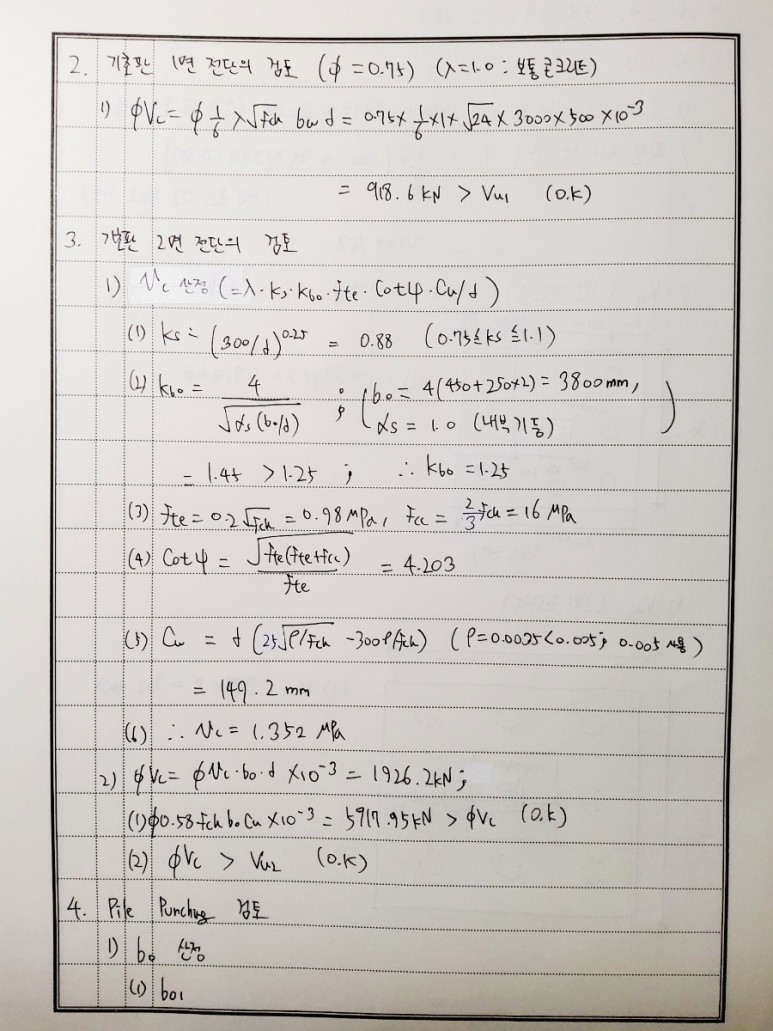 2. 기초판 1면 전단의 검토 (ϕ=0.75) (λ=1.0 : 보통콘크리트)
1) ϕVc = ϕ 1/6 λ√fck bw d = 0.75 × 1/6 × 1 × √24 × 3000 × 500 × 10⁻³
= 918.6 kN > Vu1 (O.K)
3. 기초판 2면 전단의 검토
1) Vc 산정 (=λ·ks·kbo·fte·Cotψ·Cu/d)
(1) ks = (300/d)^0.25 = 0.88 (0.75≦ks≦1.1)
(2) kbo = 4/√αs(bo/d) ; (bo = 4(450+250×2) = 3800mm,
αs = 1.0 (내부기둥))
= 1.45 > 1.25 ; ∴ kbo = 1.25
(3) fte = 0.2√fck = 0.98 MPa, fcc = 2/3 fck = 16 MPa
(4) Cotψ = √fte(fte+fcc)/fte = 4.203
(5) Cu = d (25√ρ/fck - 300ρ/fck) (ρ=0.0025<0.005; 0.005 사용)
= 149.2 mm
(6) ∴ Vc = 1.352 MPa
2) ϕVc = ϕVc·bo·d ×10⁻³ = 1926.2kN;
(1) ϕ0.58fck bo Cu ×10⁻³ = 5917.95kN > ϕVc (O.K)
(2) ϕVc > Vu2 (O.K)
4. Pile Punching 검토
1) bo 산정
(1) bo1